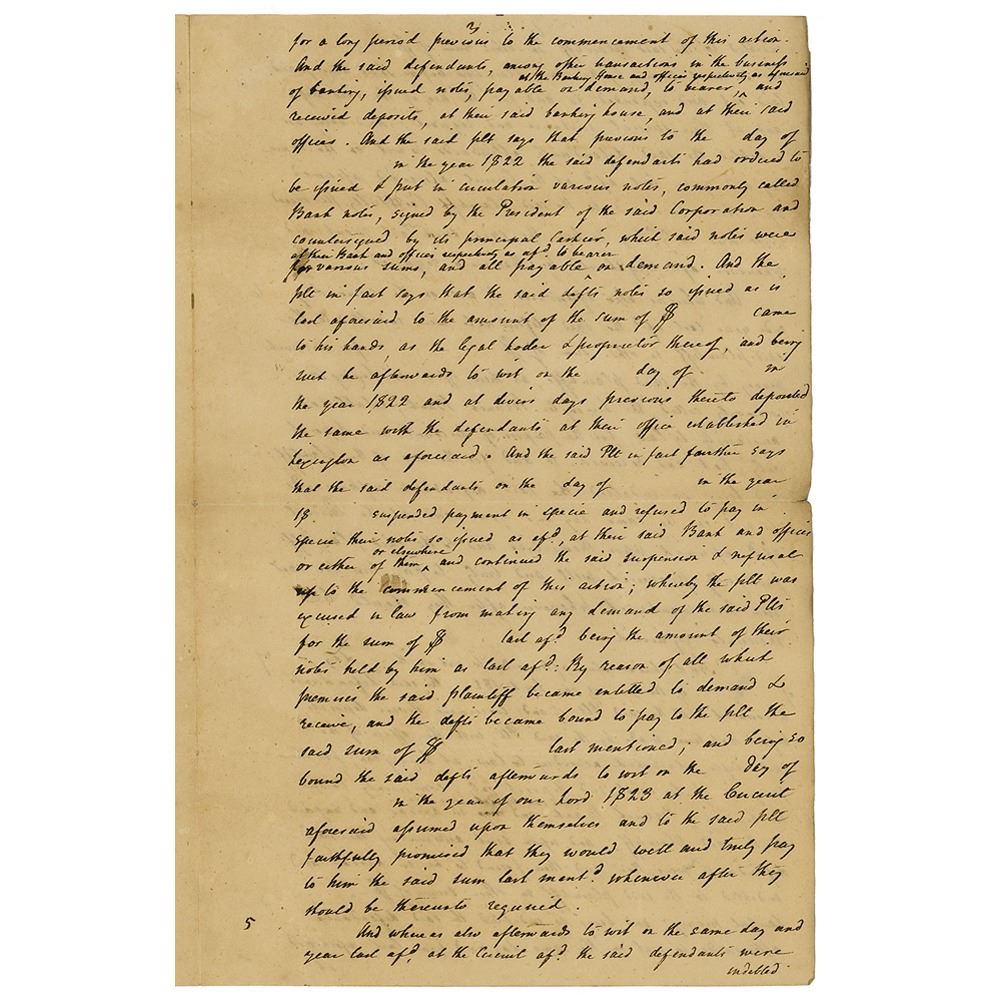 3
for a long period previous to the commencement of this action.
And the said defendants, among other transactions in the business
at the Banking House and offices respectively as aforesaid
of banking, issued notes, payable on demand, to bearer, ^ and
received deposits, at their said banking house, and at their said
offices. And the said plt says that previous to the day of
in the year 1822 the said defendants had ordered to
be issued & put in circulation various notes, commonly called
Bank notes, signed by the President of the said Corporation and
countersigned by its principal Cashier, which said notes were
at their Bank and offices respectively as afd. to bearer
for various sums, and all payable ^ on demand. And the
plt in fact says that the said defts notes so issued as is
last aforesaid to the amount of the sum of $ came
to his hands, as the legal holder & proprietor thereof, and being
such he afterwards to wit on the day of in
the year 1822 and at divers days previous thereto deposited
the same with the defendants at their office established in
Lexington as aforesaid. And the said Plt in fact further says
that the said defendants on the day of in the year
18 suspended payment in specie and refused to pay in
specie their notes so issued as afd, at their said Bank and offices
or elsewhere
or either of them ^ and continued the said suspension & refusal
up to the commencement of this action; whereby the plt was
excused in law from making any demand of the said Plts
for the sum of $ last afd. being the amount of their
notes held by him as last afd: By reason of all which
premises the said plaintiff became entitled to demand &
receive, and the defts became bound to pay to the plt the
said sum of $ last mentioned; and being so
bound the said defts afterwards to wit on the day of
in the year of our Lord 1823 at the Circuit
aforesaid assumed upon themselves and to the said plt
faithfully promised that they would well and truly pay
to him the said sum last mentd. whenever after they
should be thereunto required.
5
And whereas also afterwards to wit on the same day and
year last afd. at the Circuit afd. the said defendants were
indebted